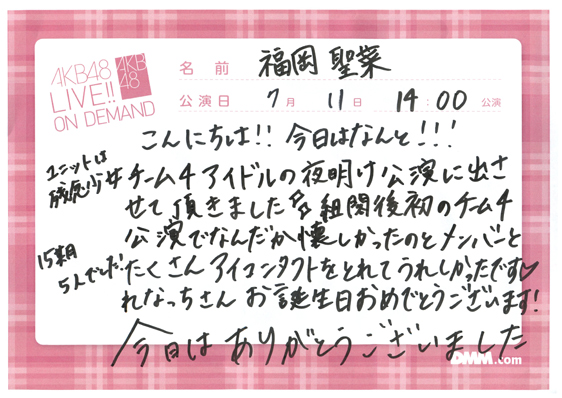 AKB48
LIVE!!
ON DEMAND
AKB
48
名前 福岡聖菜
公演日 7月11日 14:00公演
こんにちは!! 今日はなんと!!!
チーム4アイドルの夜明け公演に出さ
せて頂きました 組閣後初のチーム4
公演でなんだか懐しかったのとメンバーと
たくさんアイコンタクトをとれてうれしかったです♡
れなっちさん お誕生日おめでとうございます!
今日はありがとうございました
ユニットは
残念少女
15期
5人でした!
DMM.com